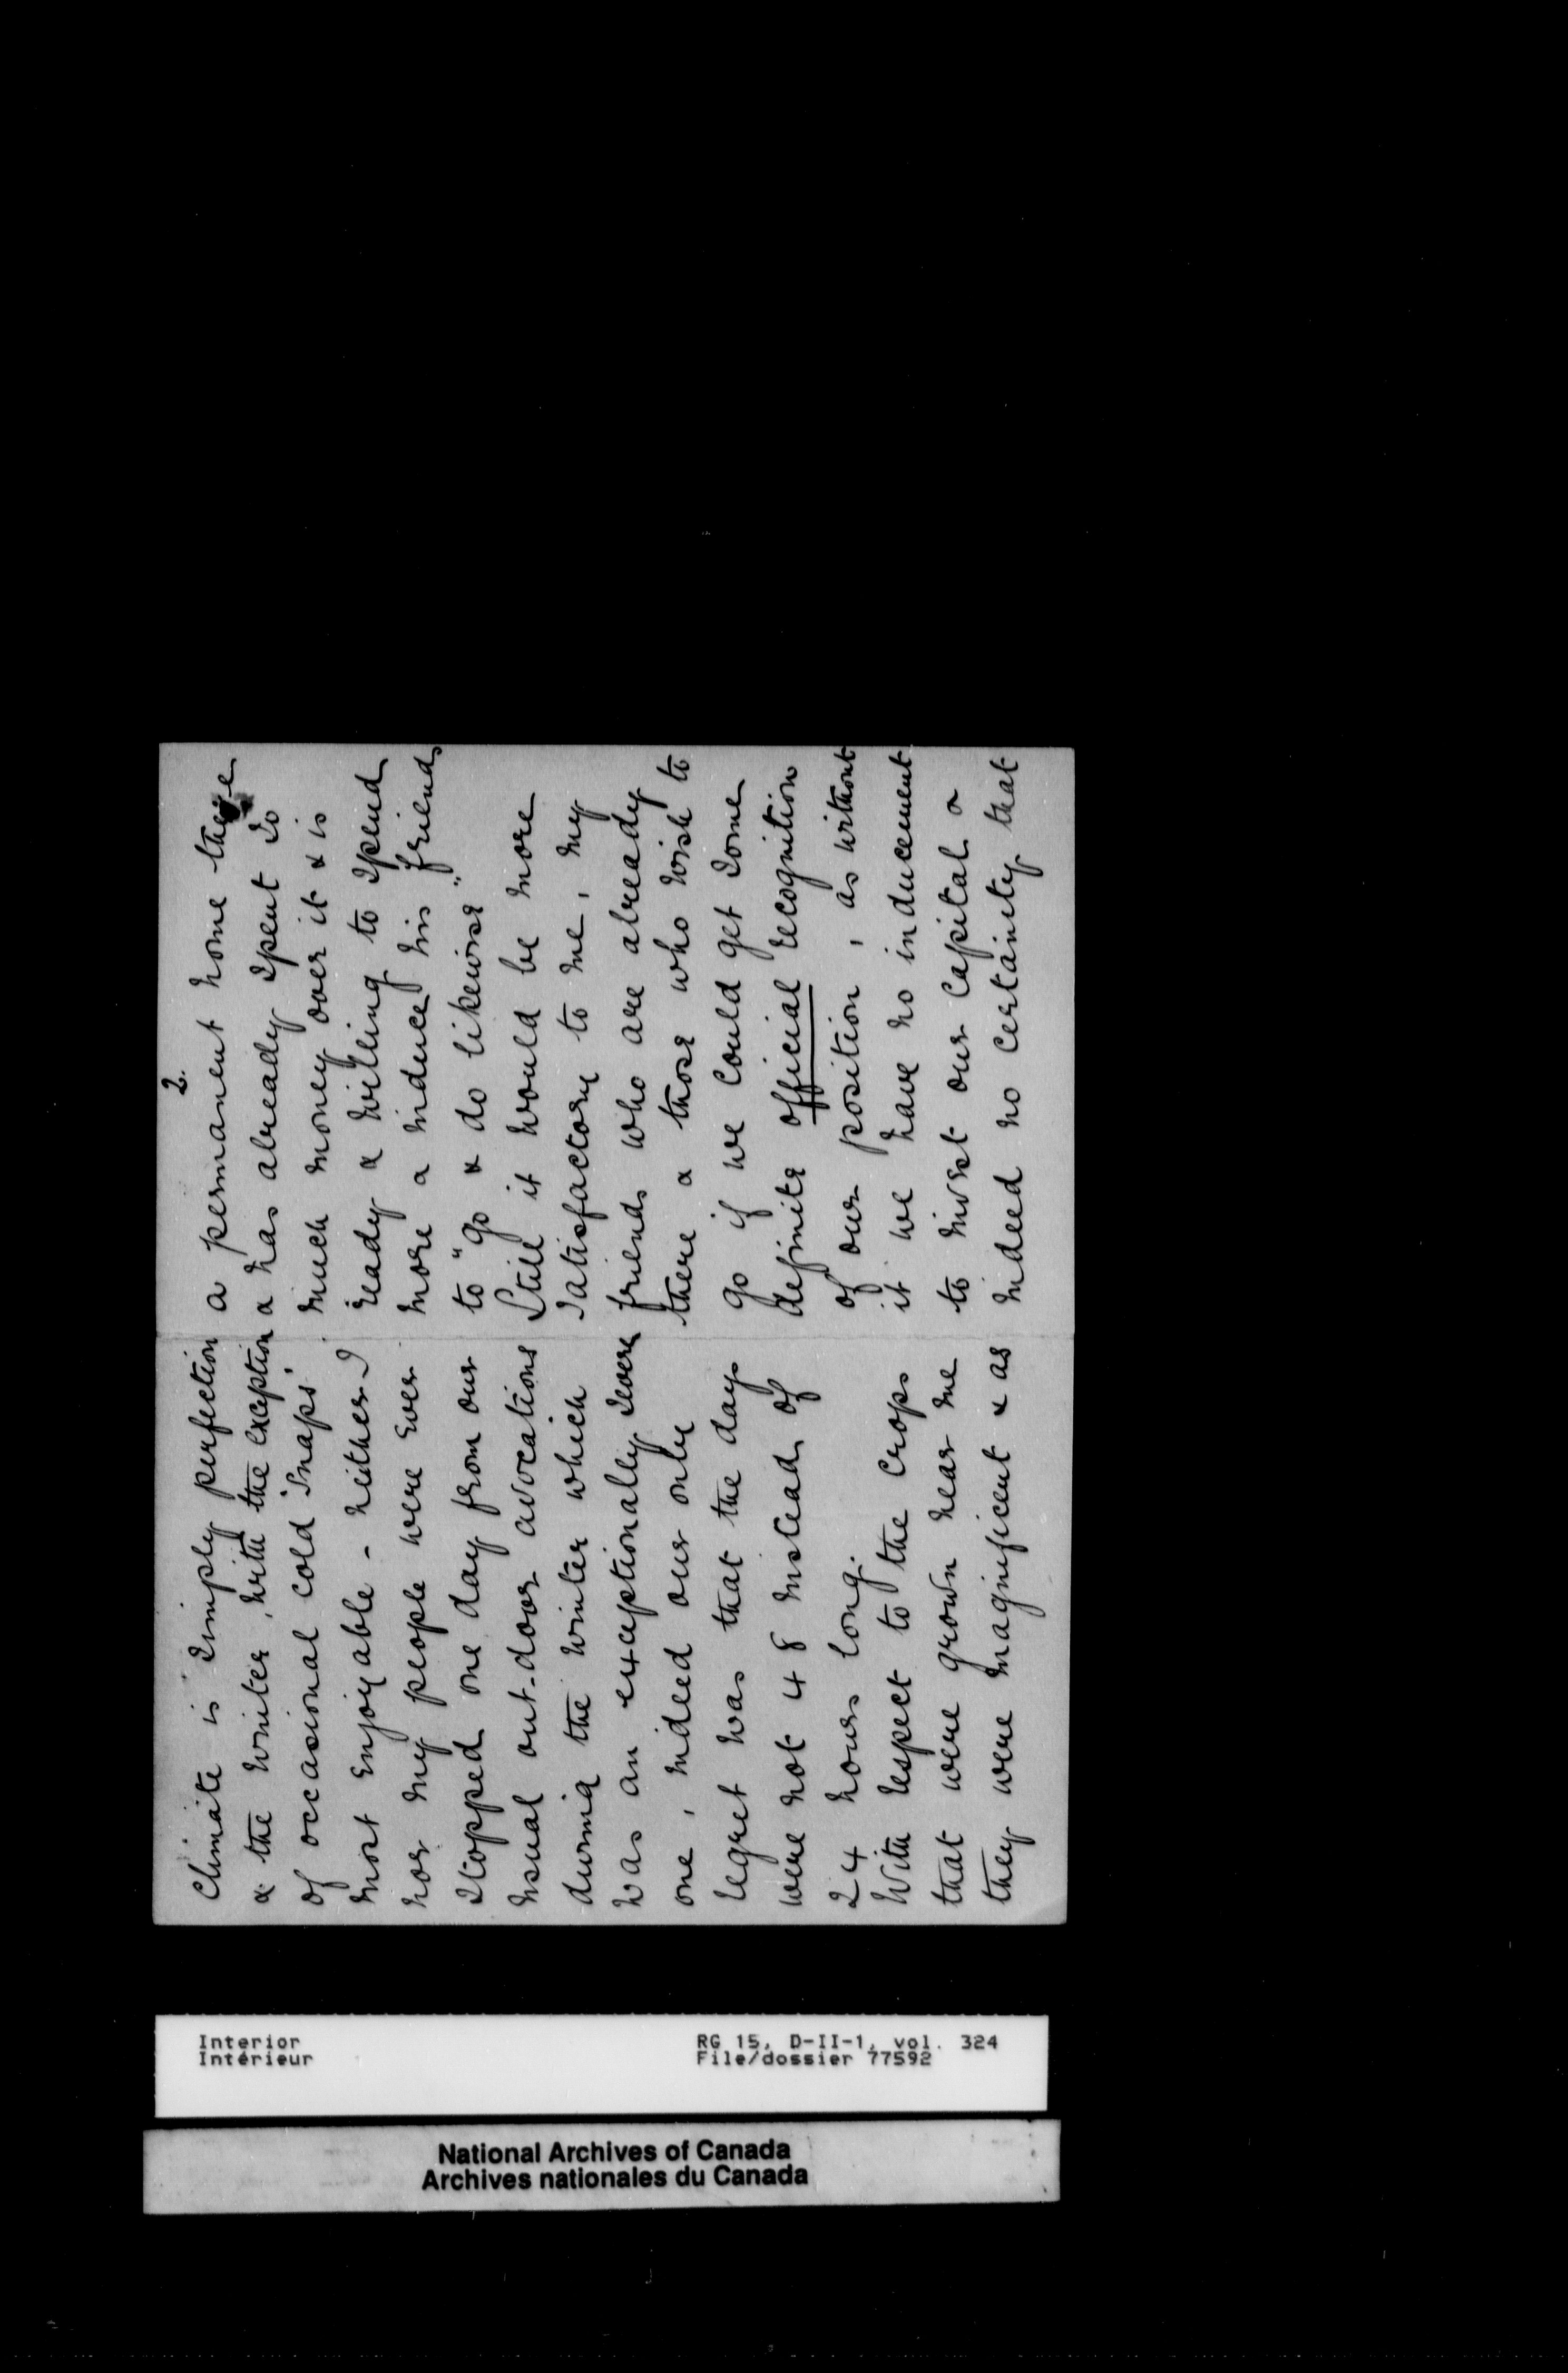 climate is simply perfection
& the winter, with the exception
of occasional cold "snaps"
most enjoyable - neither I
nor my people were ever
stopped one day from our
usual out-door avocations
during the winter which
was an exceptionally severe
one, indeed our only
regret was that the days
were not 48 instead of
24 hours long.
With respect to the crops
that were grown near me
they were magnificent & as
2.
a permanent home there
& has already spent so
much money over it & is
ready & willing to spend
more & induce his friends
to "go & do likewise"
Still it would be more
satisfactory to me, my
friends who are already
there & those who wish to
go if we could get some
definite official recognition
of our position, as without
it we have no inducement
to invest our capital &
indeed no certainty that
Interior
Intérieur
RG 15, D-II-1, vol. 324
File/dossier 77592
National Archives of Canada
Archives nationales du Canada